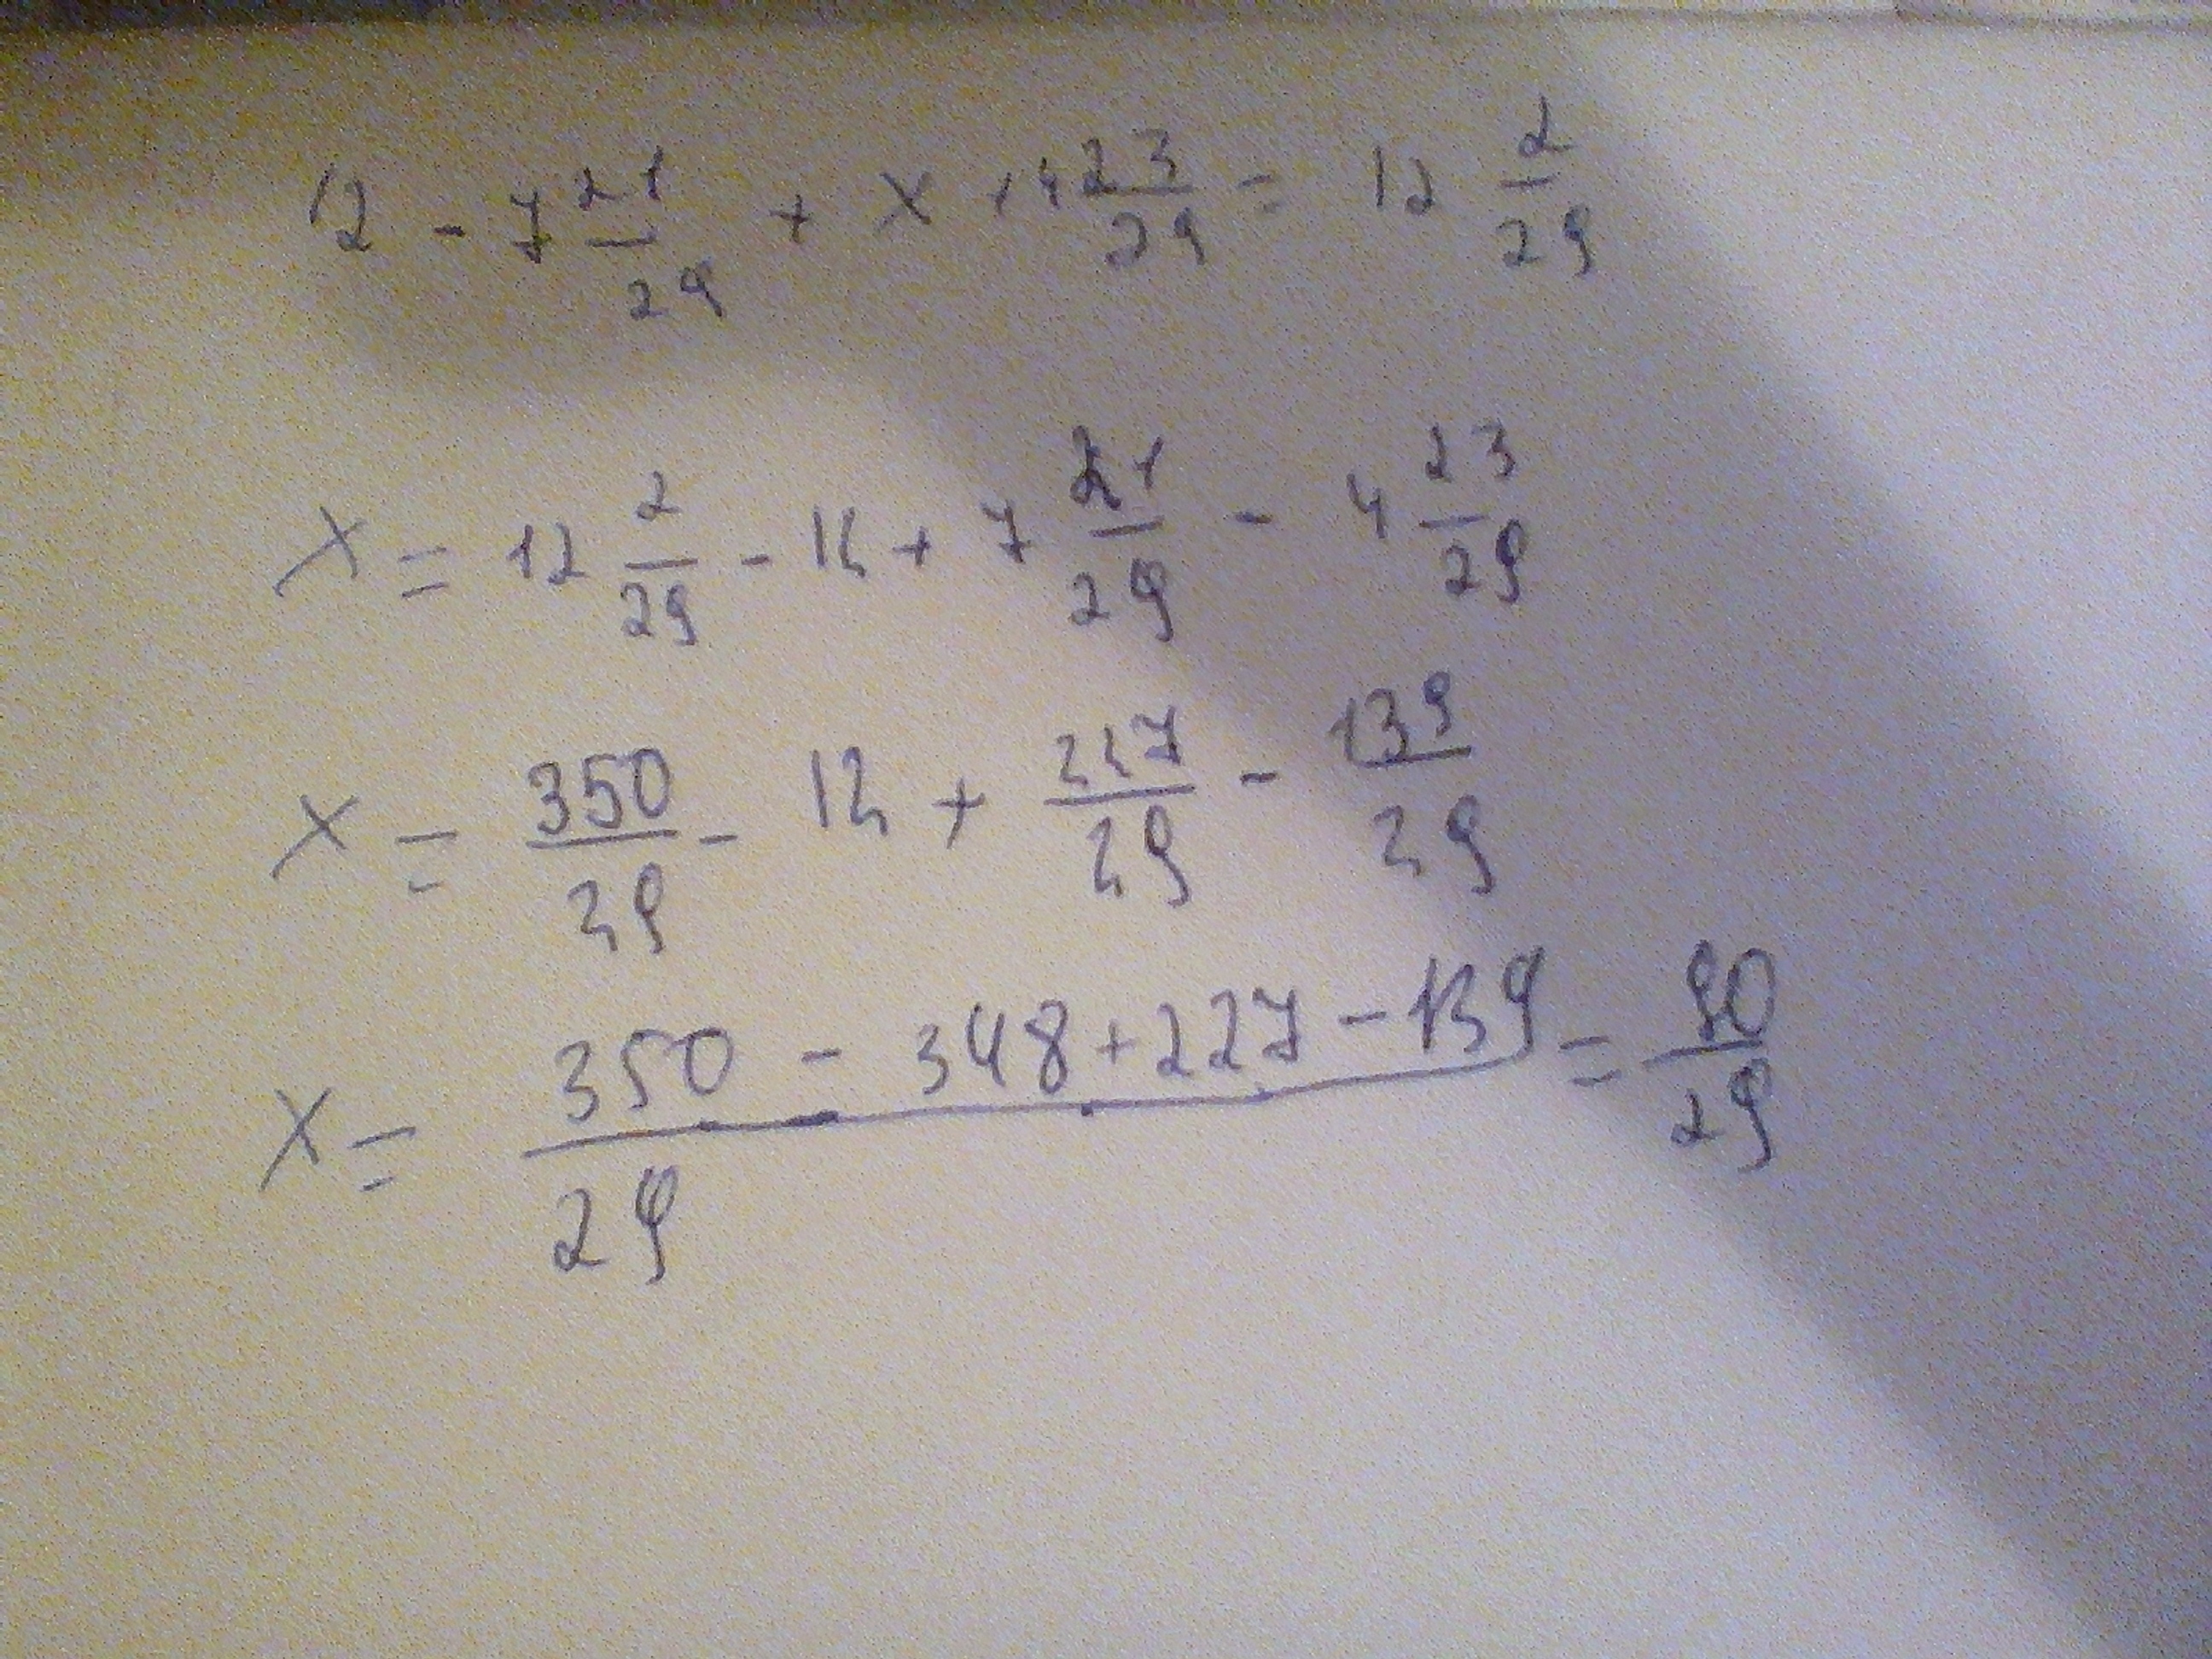 12 - 7 21/29 + x + 4 23/29 = 12 2/29
x = 12 2/29 - 12 + 7 21/29 - 4 23/29
x = 350/29 - 12 + 227/29 - 139/29
x = (350 - 348 + 227 - 139)/29 = 90/29